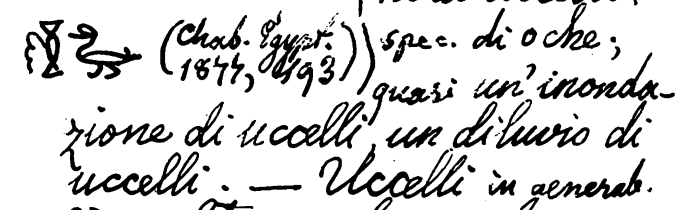 (Chab. Egypt. spec. di oche;
1877, 193) quasi un' inonda-
zione di uccelli, un diluvio di
uccelli. — Uccelli in general.